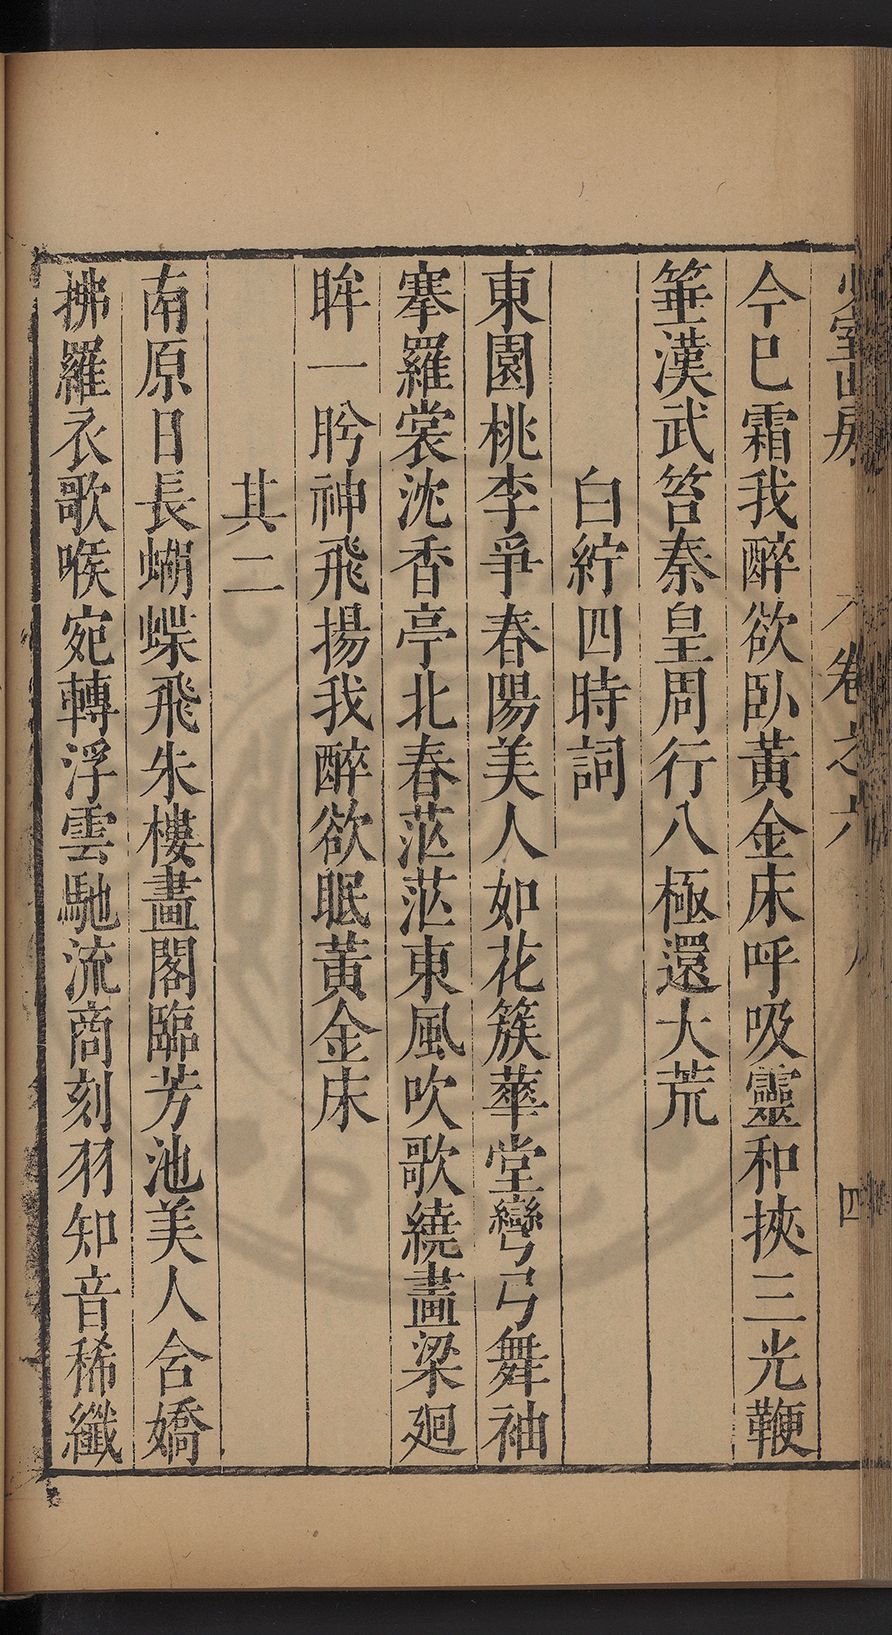 少室山房 卷之六 四
今已霜我醉欲臥黃金床呼吸靈和挾三光鞭
箠漢武笞秦皇周行八極還大荒
白紵四時詞
東園桃李爭春陽美人如花簇華堂彎弓舞袖
搴羅裳沈香亭北春茫茫東風吹歌繞畫梁廻
眸一盻神飛揚我醉欲眠黃金床
其二
南原日長蝴蝶飛朱樓畫閣臨芳池美人含嬌
拂羅衣歌喉宛轉浮雲馳流商刻羽知音稀纖